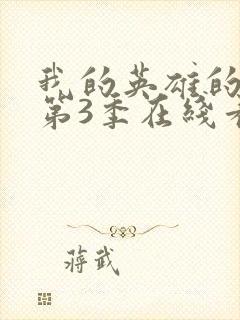 我的英雄的
第3季在线
蒋武